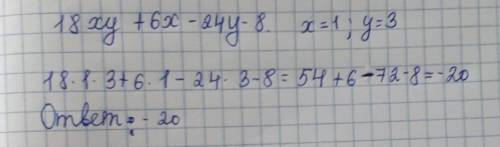 18xy +6x -24y-8. x=1; y=3
18·1·3+6·1-24·3-8=54+6-72-8=-20
Ответ: -20